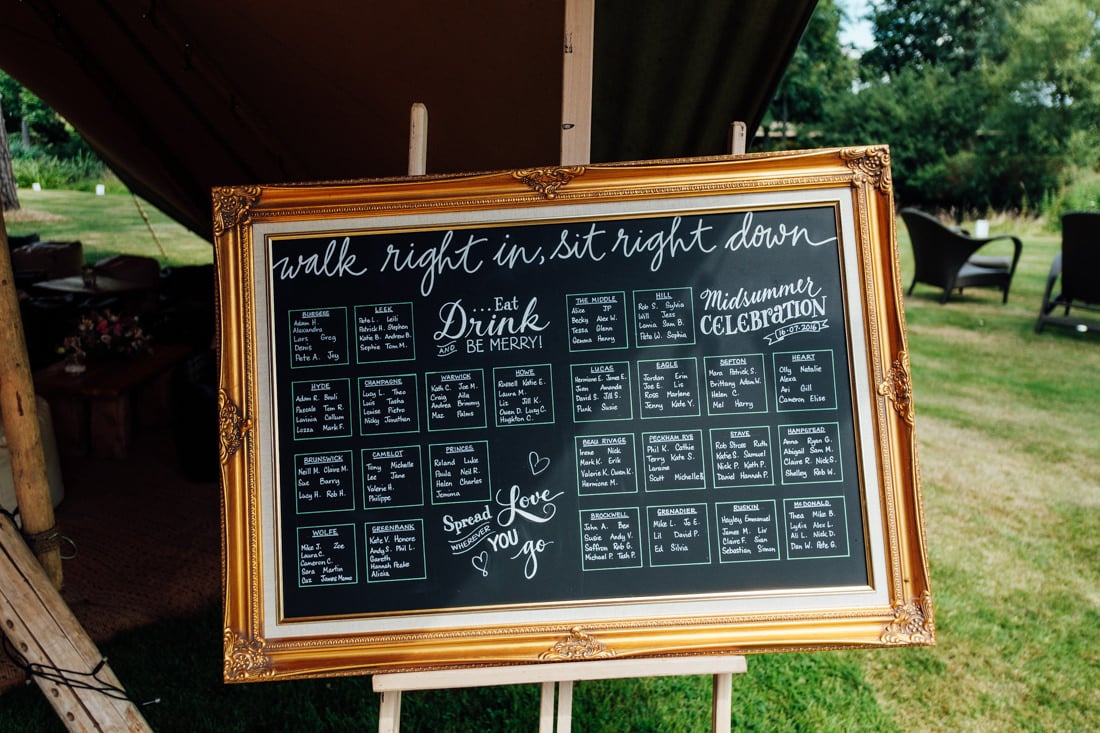 walk right in, sit right down
...Eat
Drink
AND BE MERRY!
Midsummer
CELEBRATION
16-07-2016
Adam H.
Alexandra
Lars Greg
Denis
Pete A. Joy
LEEK
Pete L. Leili
Patrick H. Stephen
Katie B. Andrew B.
Sophie Tom M.
THE MIDDLE
Alice JP
Becky Alex W.
Tessa Glenn
Gemma Henry
HILL
Rob S. Sylvia
Will Jess
Sam B.
Pete W. Sophia
HYDE
Adam R. Brouli
Pascale Tom R.
Lavinia Callum
Lozza Mark F.
CHAMPAGNE
Lucy L. Theo
Luis Tasha
Louise Pietro
Nicky Jonathan
WARWICK
Kath C. Joe M.
Craig Aila
Andrea Brimmy
Maz Palms
HOWE
Russell Katie E.
Laura M.
Liz Jill K.
Owen D. Lucy C.
Houghton C.
LUCAS
Hermione E. James E.
Joan Amanda
David S. Jill S.
Punk Susie
EAGLE
Jordan Erin
Joe E. Liz
Ross Marlene
Jenny Kate Y.
SEFTON
Mara Patrick S.
Brittany Adam W.
Helen C.
Mel Harry
HEART
Olly Natalie
Alexa
Ari Gill
Cameron Elise
BRUNSWICK
Neill M. Claire M.
Sue Barry
Lucy H. Rob H.
CAMELOT
Tony Michelle
Lee Jane
Valerie H.
Philippe
PRINCES
Roland Luke
Paula Neil R.
Helen Charles
Jemima
BEAU RIVAGE
Irene Nick
Mark K. Erik
Valerie K. Owen K.
Hermione M.
PECKHAM RYE
Phil K. Cathie
Terry Kate S.
Laraine
Scott Michelle B
STAVE
Rob Stross Ruth
Katie S. Samuel
Nick P. Kath P.
Daniel Hannah P.
HAMPSTEAD
Anna Ryan G.
Abigail Sam M.
Claire R. Nick S.
Shelley Rob W.
WOLFE
Mike J. Zoe
Laura C.
Cameron C.
Sara Martin
Caz James Mama
GREENBANK
Kate V. Honore
Andy S. Phil L.
Gareth
Hannah Peake
Alicia
Spread Love
WHEREVER
YOU go
BROCKWELL
John A. Bex
Susie Andy V.
Saffron Rob G.
Michael P. Tash P.
GRENADIER
Mike L. Jo E.
Lil David P.
Ed Silvia
RUSKIN
Hayley Emmanuel
James M. Liv
Claire F. Sian
Sebastian Simon
McDONALD
Thea Mike B.
Lydia Alex L.
Ali L. Nick D.
Dan W. Pete G.